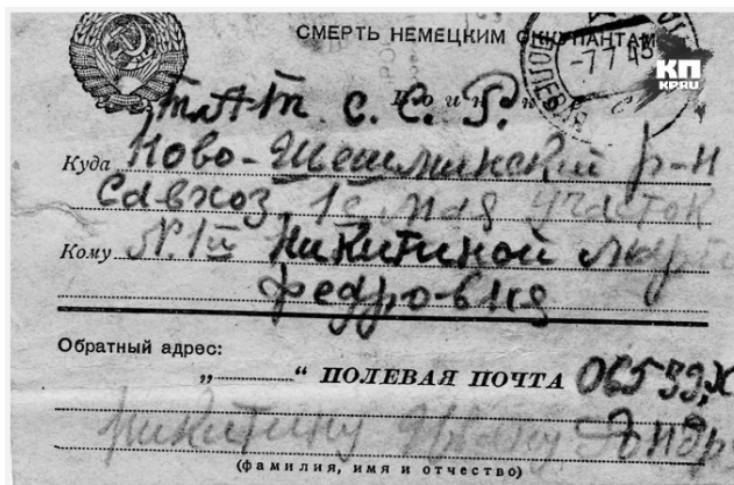 СМЕРТЬ НЕМЕЦКИМ ОККУПАНТАМ
КП
KP.RU
-7 7 45
ПОЛЕВАЯ
тАт. С. С. Р.
Куда Ново-Шешминский р-н
Савхоз 1е мая участок
Кому N. 1й Никитиной
Федровня
Обратный адрес:
„ “ ПОЛЕВАЯ ПОЧТА 06539,Х
Никитину Ивану Андр
(фамилия, имя и отчество)